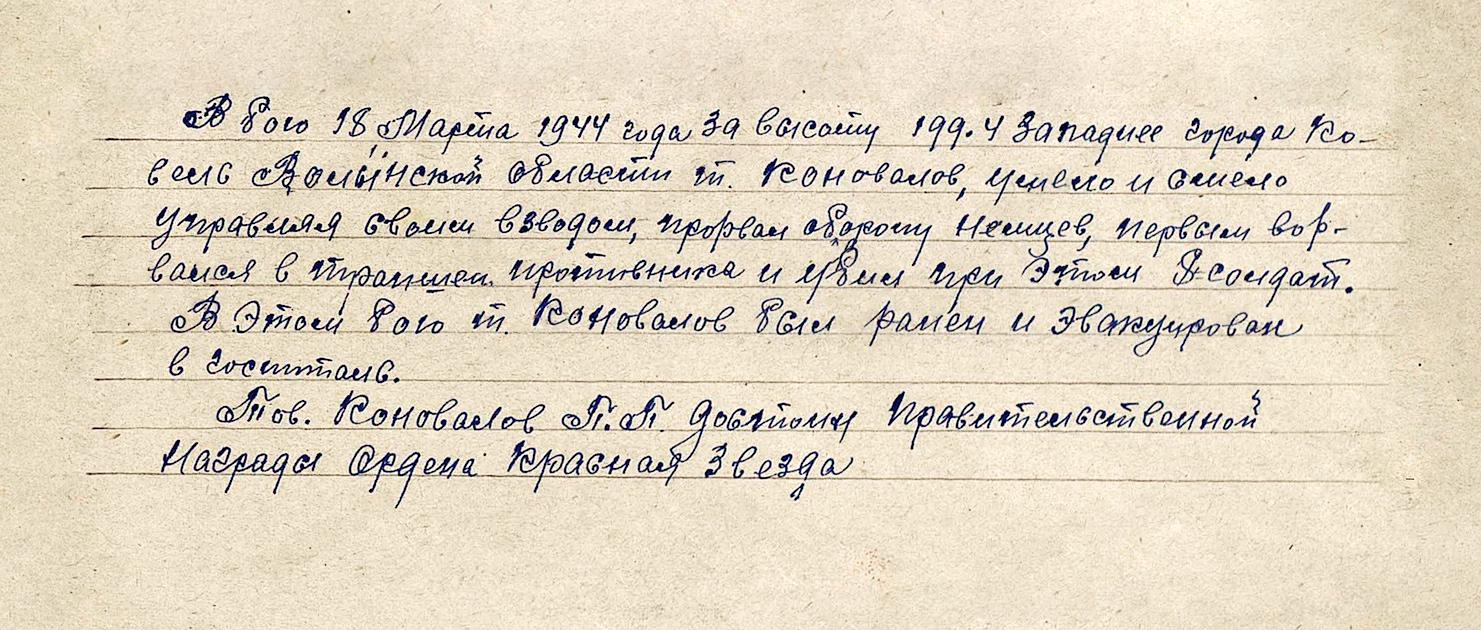 В бою 18 Марта 1944 года за высоту 199.4 Западнее города Ко-
вель Волынской области т. Коновалов, умело и смело
управляя своим взводом, прорвал оборону немцев, первым вор-
вался в траншеи противника и убил при этом 8 солдат.
В этом бою т. Коновалов был ранен и эвакуирован
в госпиталь.
Тов. Коновалов П.П. достоин Правительственной
Награды Ордена Красная Звезда